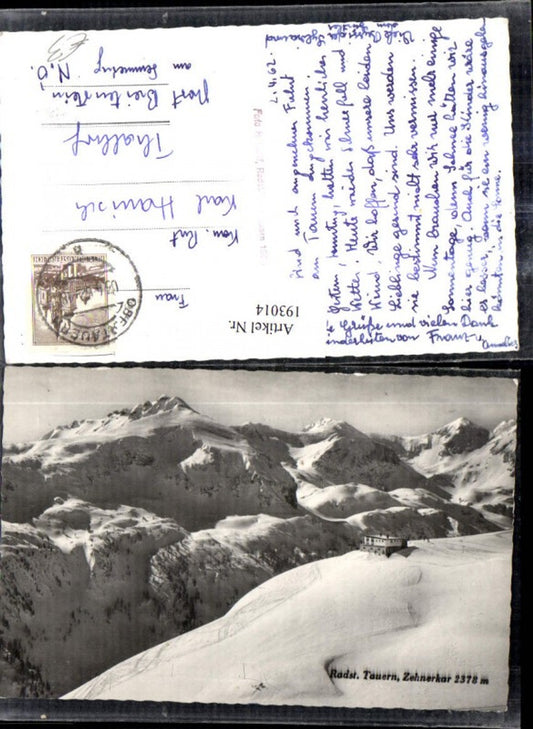 2.4.62.
Sind nach angenehmer Fahrt
am Tauern angekommen.
Gestern, Sonntag, hatten wir herrliches
Wetter. Heute wieder Schneefall und
Wind. Wir hoffen, daß unsere beiden
Lieblinge gesund sind. Uns werden
sie bestimmt nicht sehr vermissen.
Nun brauchen wir nur mehr einige
Sonnentage, denn Schnee hätten wir
hier genug. Auch für die Kinder wäre
es besser, wenn sie ein wenig hinausgehen
könnten in die Sonne.
+ Grüße und vielen Dank
indessen von Franz
Frau
Kom. Rat
Karl Hanisch
Thalhof
Post Breitenstein
am Semmering
N.Ö.
£3
OBERTAUERN
REPUBLIK ÖSTERREICH
Artikel Nr.
193014
Radst. Tauern, Zehnerkar 2378 m